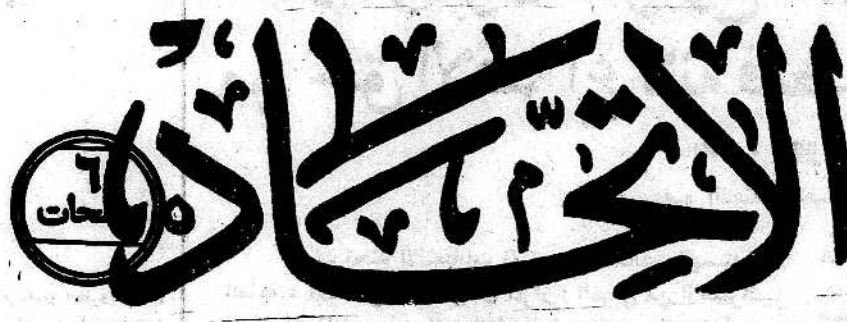 الاتحاد
٦
صفحات